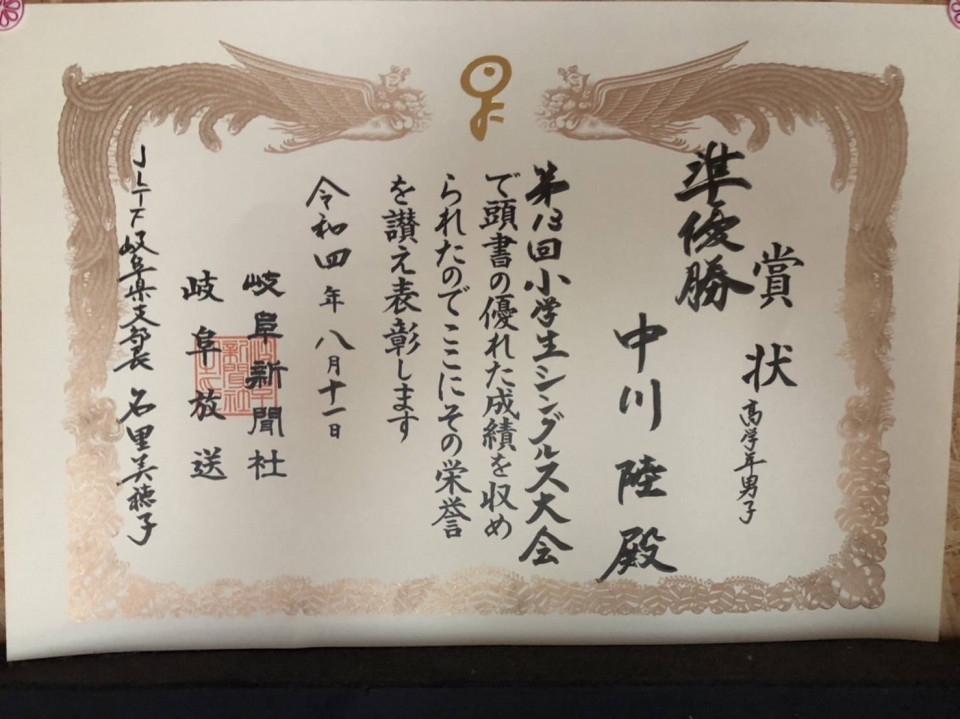 賞状
高学年男子
準優勝
中川陸殿
第13回小学生シングルス大会
で頭書の優れた成績を収め
られたのでここにその栄誉
を讃え表彰します
令和四年八月十一日
岐阜新聞社
岐阜放送
JLTF岐阜県支部長 名里美穂子